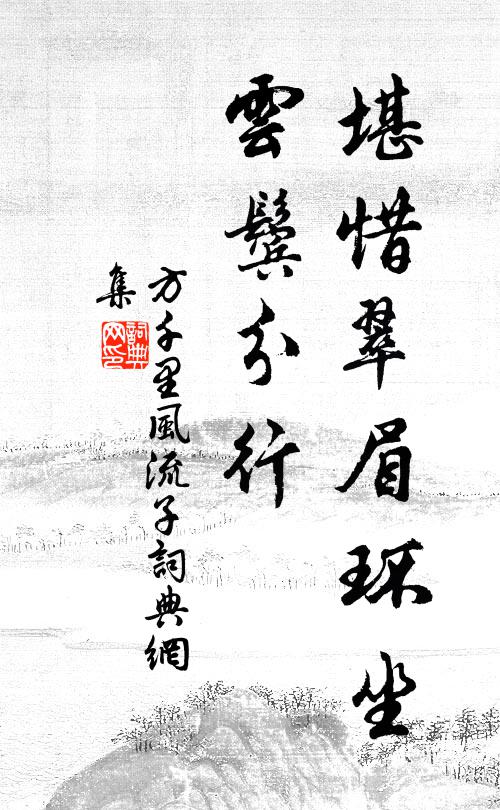 堪惜翠眉环坐
雲鬢分行
方千里風流子詞典網
集
詞典網印